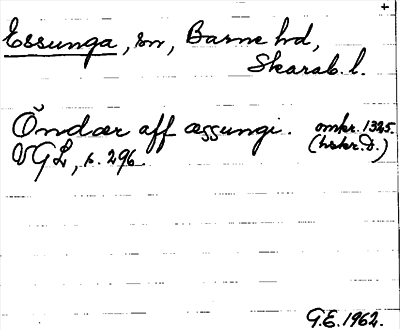 +
Essunga, sn, Barne hd,
Skarab. l.
Öndær aff æssungi. omkr. 1325.
VGL, s. 296. (hskr. D.)
G.E. 1962.